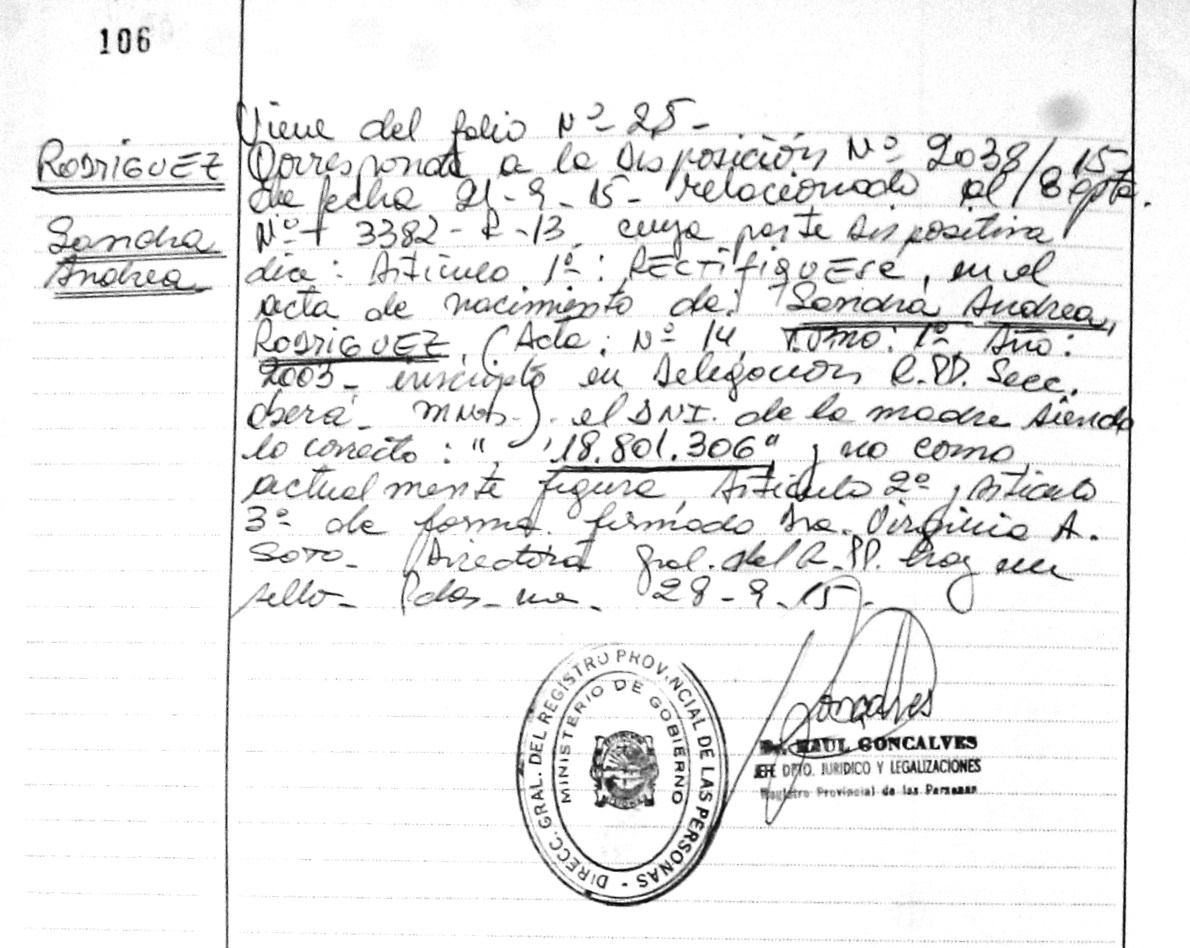 106
Viene del folio Nº 25-
RODRIGUEZ
Corresponde a la Disposición Nº 2038/15
de fecha 21-9-15- relacionado al Expte.
Sandra
Andrea
Nº 3382-R-13, cuya parte dispositiva
dice: Artículo 1º: RECTIFIQUESE, en el
acta de nacimiento de: Sandra Andrea,
RODRIGUEZ, (Acta: Nº 14, Tomo: 1º Año:
2003- inscripta en Delegación R.PP. Secc.
Oberá- Mnes-) el DNI. de la madre siendo
lo correcto: " 18.801.306" y no como
actualmente figura, Artículo 2º y Artículo
3º de forma. firmado Dra. Virginia A.
Soto- Directora Gral. del R.PP. hay un
sello- Pdas-Mnes. 28-9-15-
DIRECC. GRAL. DEL REGISTRO PROVINCIAL DE LAS PERSONAS -
MINISTERIO DE GOBIERNO
Dr. RAUL GONCALVES
JEFE DPTO. JURIDICO Y LEGALIZACIONES
Registro Provincial de las Personas